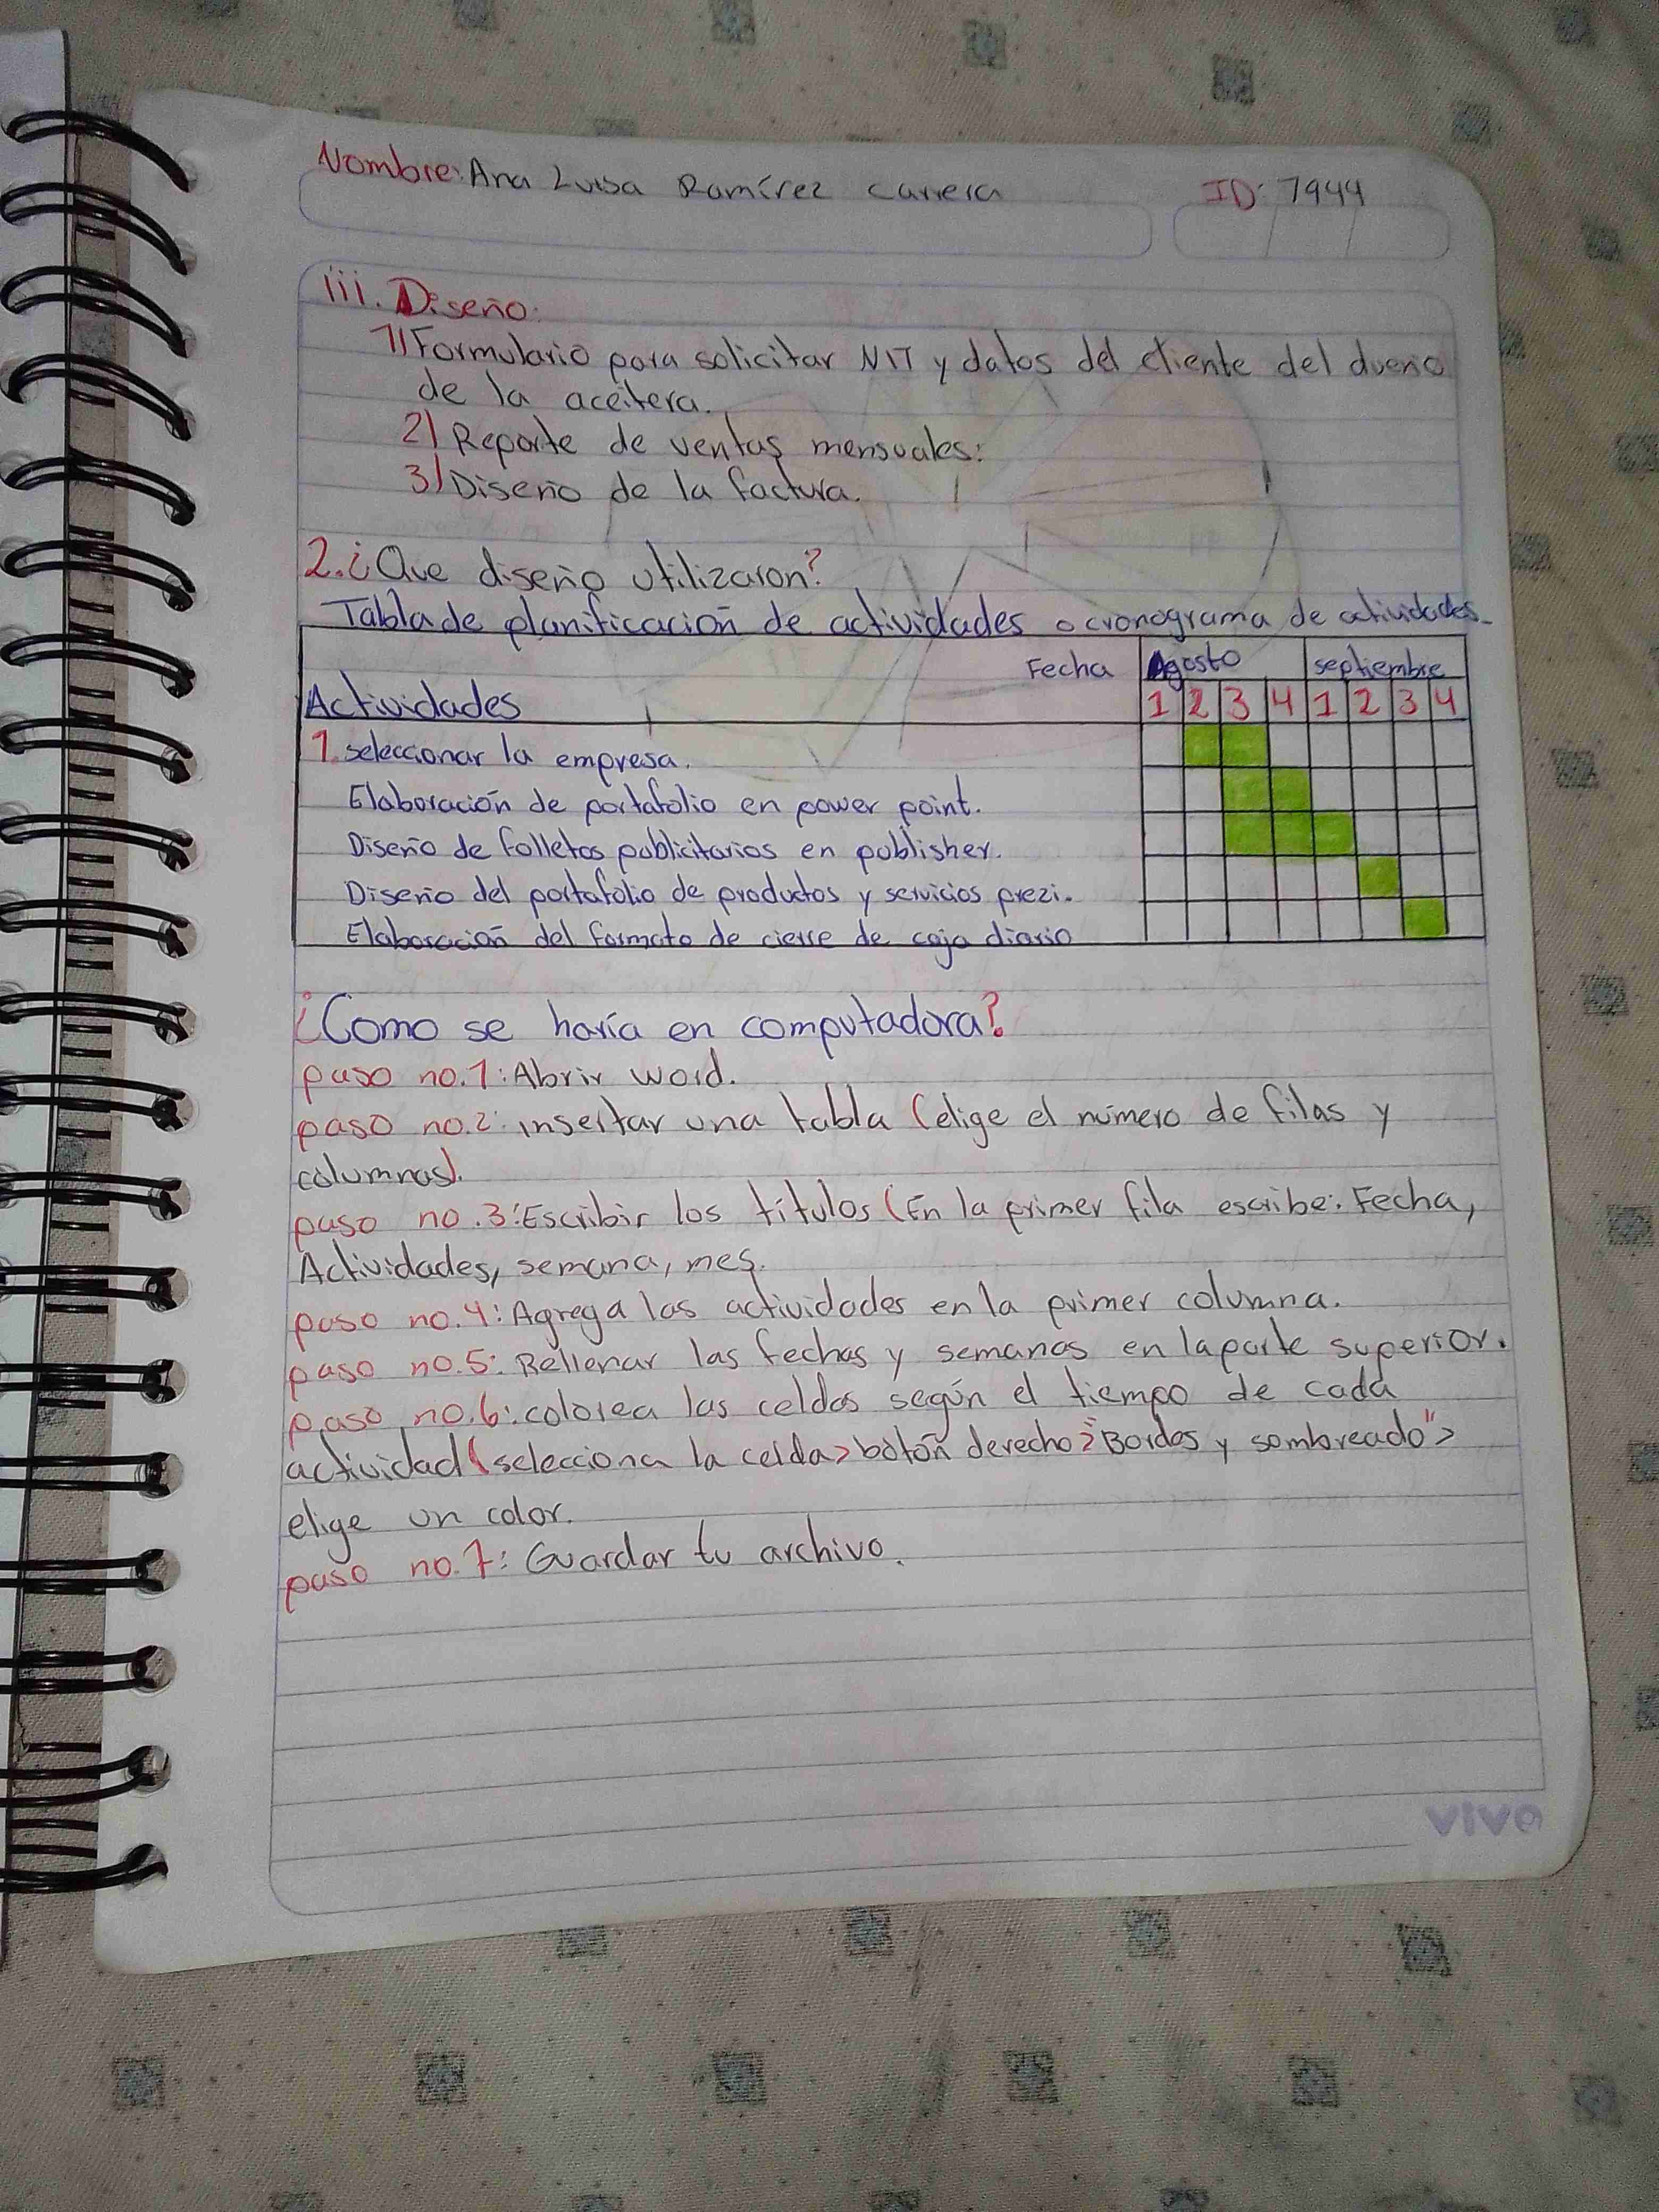 Nombre: Ana Luisa Ramírez Carrera ID: 7944
iii. Diseño:
1) Formulario para solicitar NIT y datos del cliente del dueño
de la aceitera.
2) Reporte de ventas mensuales:
3) Diseño de la factura.
2. ¿Que diseño utilizaron?
Tabla de planificación de actividades o cronograma de actividades
Fecha Agosto septiembre
Actividades 1 2 3 4 1 2 3 4
1. seleccionar la empresa.
Elaboración de portafolio en power point.
Diseño de folletos publicitarios en publisher.
Diseño del portafolio de productos y servicios prezi.
Elaboración del formato de cierre de caja diario
¿Como se haría en computadora?
paso no.1: Abrir word.
paso no.2: insertar una tabla (elige el número de filas y
columnas).
paso no.3: Escribir los títulos (En la primer fila escribe: Fecha,
Actividades, semana, mes.
paso no.4: Agrega las actividades en la primer columna.
paso no.5: Rellenar las fechas y semanas en la parte superior.
paso no.6: colorea las celdas según el tiempo de cada
actividad (selecciona la celda > botón derecho > "Bordes y sombreado" >
elige un color.
paso no.7: Guardar tu archivo.
vivo